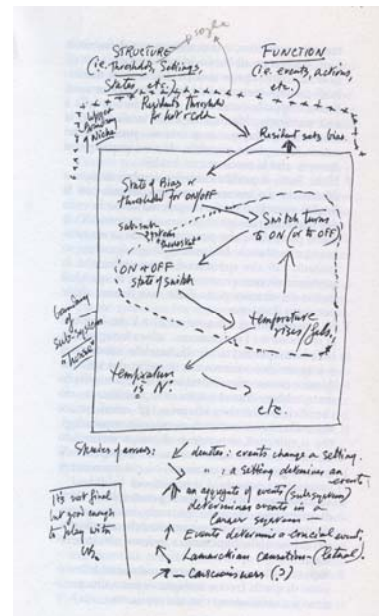 style
STRUCTURE
(i.e. Thresholds, Settings,
States, etc.)
FUNCTION
(i.e. events, actions,
etc.)
Upper
Boundary
of Niche
Resident's Threshold
for hot & cold
Resident sets bias
State of Bias or
threshold for ON/OFF
Switch turns
to ON (or to OFF)
sub-sub-
system
"thermostat"
ON or OFF
state of switch
boundary
of
sub-system
"house"
temperature
rises/falls.
temperature
is N°.
etc.
Species of arrows:
denotes: events change a setting.
" : a setting determines an
event;
an aggregate of events (subsystem)
determines events in a
larger system
Events determine a crucial event,
Lamarckian causation (lethal).
— Consciousness (?)
It's not final
but good enough
to play with